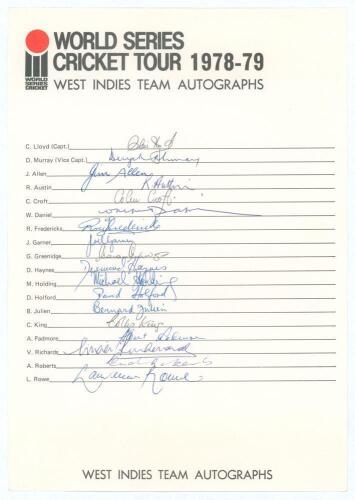 WORLD SERIES
CRICKET TOUR 1978-79
WORLD
SERIES
CRICKET
WEST INDIES TEAM AUTOGRAPHS
C. Lloyd (Capt.)
D. Murray (Vice Capt.) Deryck Murray
J. Allen Jim Allen
R. Austin R. Austin
C. Croft Colin Croft
W. Daniel
R. Fredericks Roy Fredericks
J. Garner Joel Garner
G. Greenidge
D. Haynes Desmond Haynes
M. Holding Michael Holding
D. Holford David Holford
B. Julien Bernard Julien
C. King Collis King
A. Padmore Albert Padmore
V. Richards
A. Roberts
L. Rowe Lawrence Rowe
WEST INDIES TEAM AUTOGRAPHS